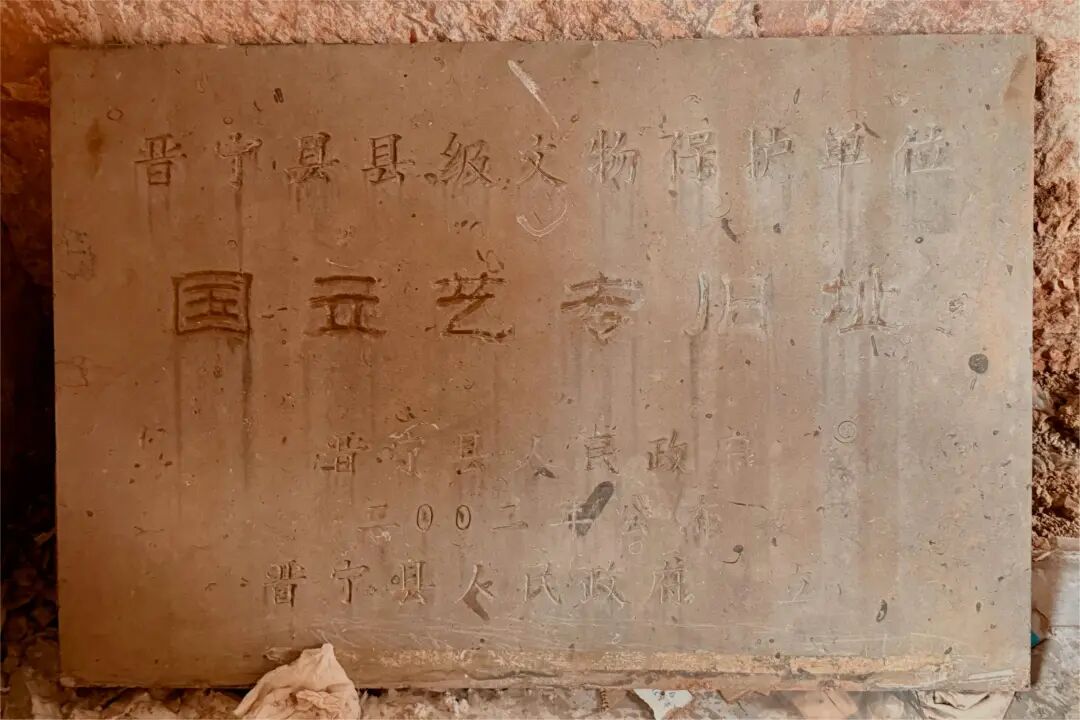 晋宁县县级文物保护单位
国立艺专旧址
晋宁县人民政府
二00二年公布
晋宁县人民政府 立